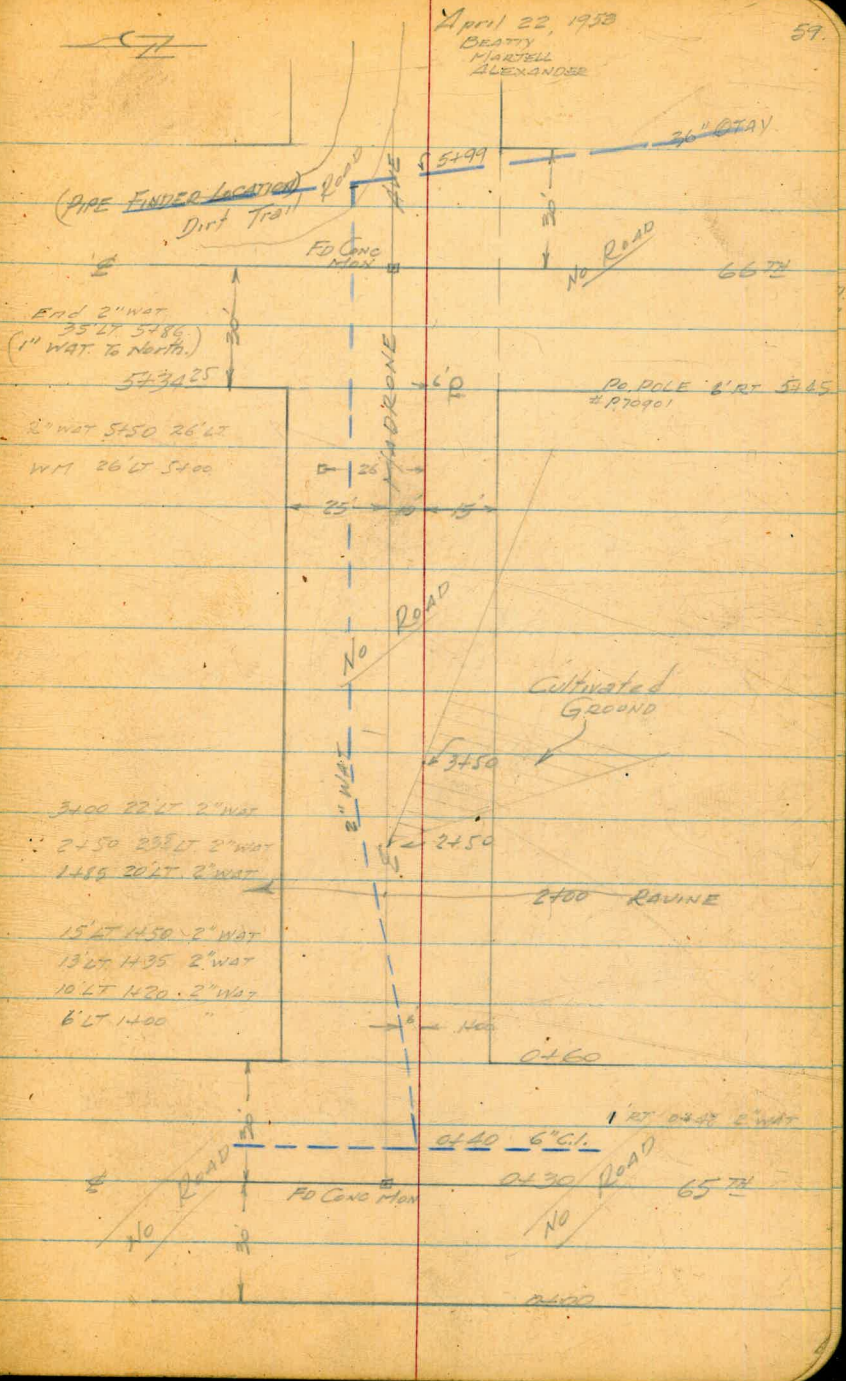 April 22, 1953
59.
BEATTY
MARTELL
ALEXANDER
36" OTAY
5+99
(PIPE FINDER LOCATION)
Dirt Trail ROAD
30'
FD CONC
MON
NO ROAD
℄
66 TH
MADRONE AVE
End 2" WAT.
35' LT. 5+86
(1" WAT. To North.)
30'
5+34.25
6'
PO. POLE 8' RT 5+45
# P70901
2" WAT 5+50 26' LT
WM 26' LT 5+00
26'
25' 10' 15'
NO ROAD
Cultivated
GROUND
3+50
2" WAT
3+00 22' LT 2" WAT
2+50 LT 2" WAT
2+50
1+85 20' LT. 2" WAT
2+00 RAVINE
15' LT 1+50 2" WAT
13' LT 1+35 2" WAT
10' LT 1+20 2" WAT
6' LT 1+00 "
6' 1+00
0+60
30'
1' RT 0+40 2" WAT
0+40 6" C.I.
NO ROAD
NO ROAD
℄
0+30
65 TH
FD CONC MON
30'
0+00